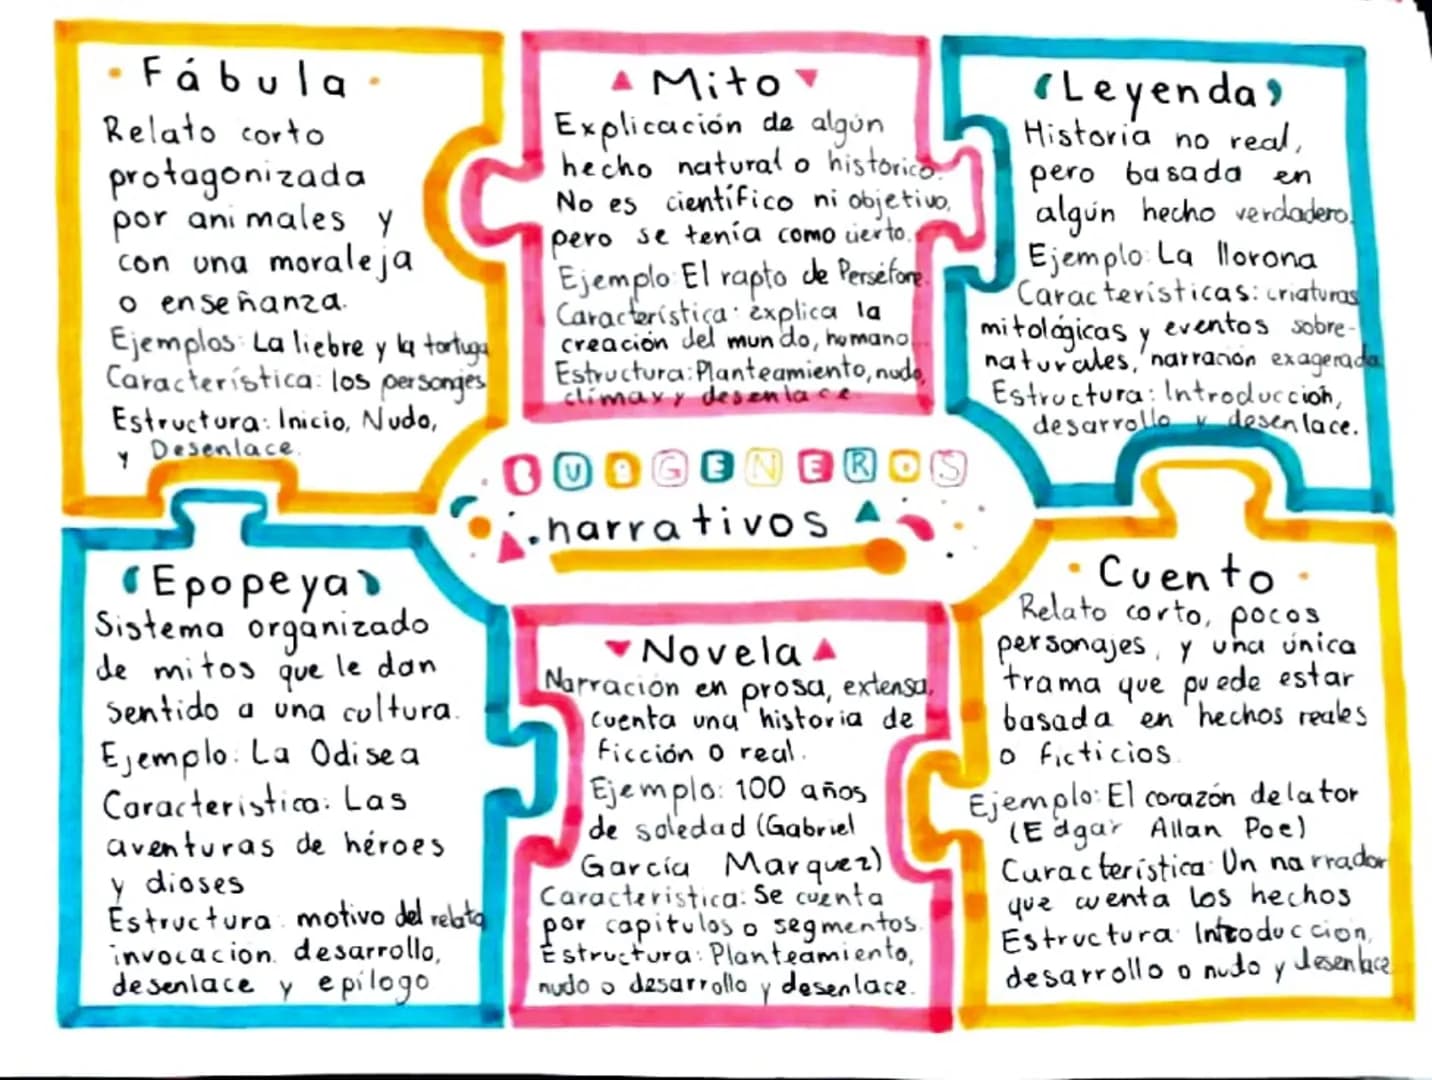 Fábula
Relato corto
protagonizada
por animales y
con una moraleja
o enseñanza.
Ejemplos: La liebre y la tortuga
Característica: los personjes
Estructura: Inicio, Nudo,
y Desenlace.
Mito
Explicación de algún
hecho natural o histórico.
No es científico ni objetivo,
pero se tenía como cierto.
Ejemplo: El rapto de Perséfone.
Característica: explica la
creación del mundo, humano...
Estructura: Planteamiento, nudo,
climax y desenlace.
Leyenda
Historia no real,
pero basada en
algún hecho verdadero.
Ejemplo: La llorona
Características: criaturas
mitológicas y eventos sobre-
naturales, narración exagerada
Estructura: Introducción,
desarrollo y desenlace.
SUBGENEROS
narrativos
Epopeya
Sistema organizado
de mitos que le dan
sentido a una cultura.
Ejemplo: La Odisea
Caracteristica: Las
aventuras de héroes
y dioses
Estructura: motivo del relato
invocacion, desarrollo,
desenlace y epílogo
Novela
Narración en prosa, extensa,
cuenta una historia de
ficción o real.
Ejemplo: 100 años
de soledad (Gabriel
García Marquez)
Caracteristica: Se cuenta
por capitulos o segmentos.
Estructura: Planteamiento,
nudo o desarrollo y desenlace.
Cuento
Relato corto, pocos
personajes, y una única
trama que puede estar
basada en hechos reales
o ficticios.
Ejemplo: El corazón delator
(Edgar Allan Poe)
Característica: Un narrador
que cuenta los hechos
Estructura: Introduccion,
desarrollo o nudo y desenlace